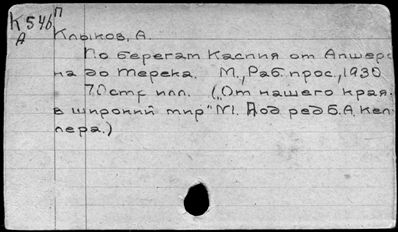 К 546 П
А
Клыков, А.
По берегам Каспия от Апшеро
на до Терека. М., Раб. прос., 1930
70стр илл. ("От нашего края.
в широкий мир" №1. Под ред Б.А. Кел-
лера.)